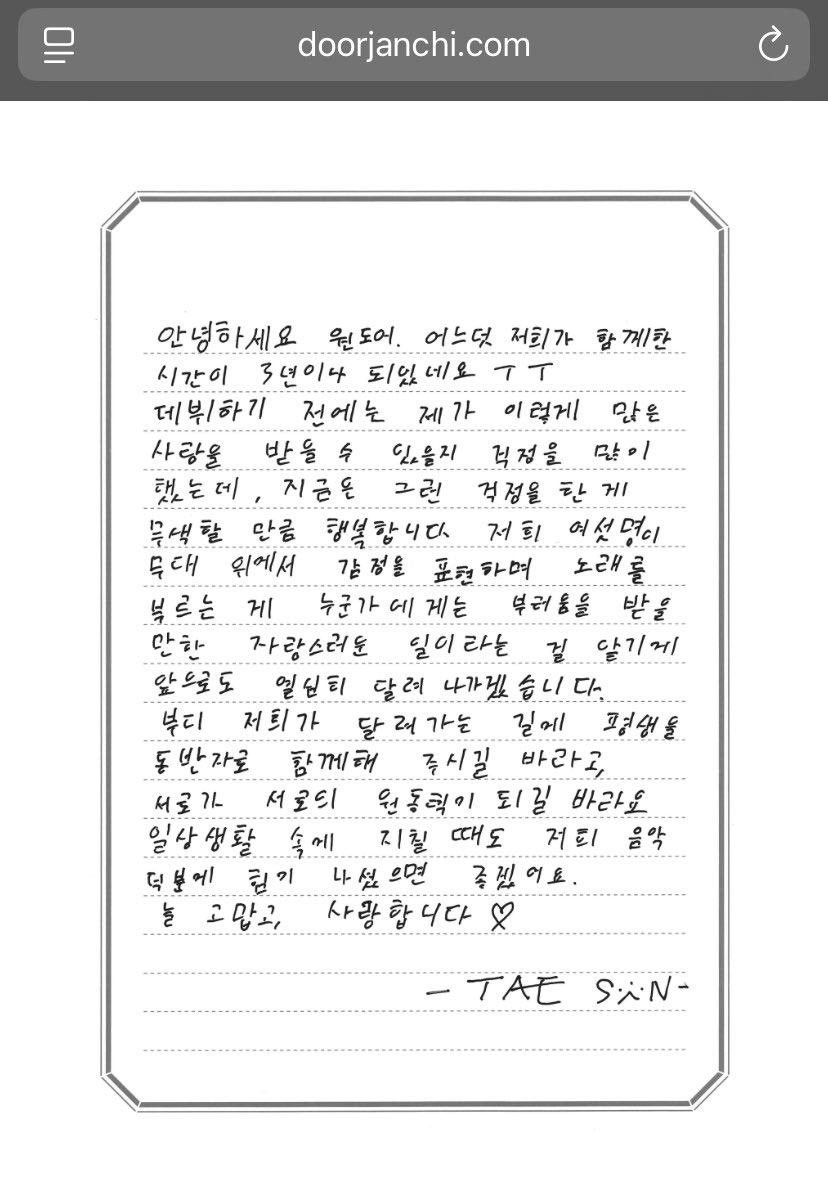 doorjanchi.com
안녕하세요 원도어. 어느덧 저희가 함께한
시간이 3년이나 되었네요 ㅜㅜ
데뷔하기 전에는 제가 이렇게 많은
사랑을 받을 수 있을지 걱정을 많이
했는데, 지금은 그런 걱정을 한 게
무색할 만큼 행복합니다. 저희 여섯명이
무대 위에서 감정을 표현하며 노래를
부르는 게 누군가에게는 부러움을 받을
만한 자랑스러운 일이라는 걸 알기에
앞으로도 열심히 달려 나가겠습니다.
부디 저희가 달려가는 길에 평생을
동반자로 함께해 주시길 바라고,
서로가 서로의 원동력이 되길 바라요
일상생활 속에 지칠 때도 저희 음악
덕분에 힘이 나셨으면 좋겠어요.
늘 고맙고, 사랑합니다 ♡
- TAE SAN -